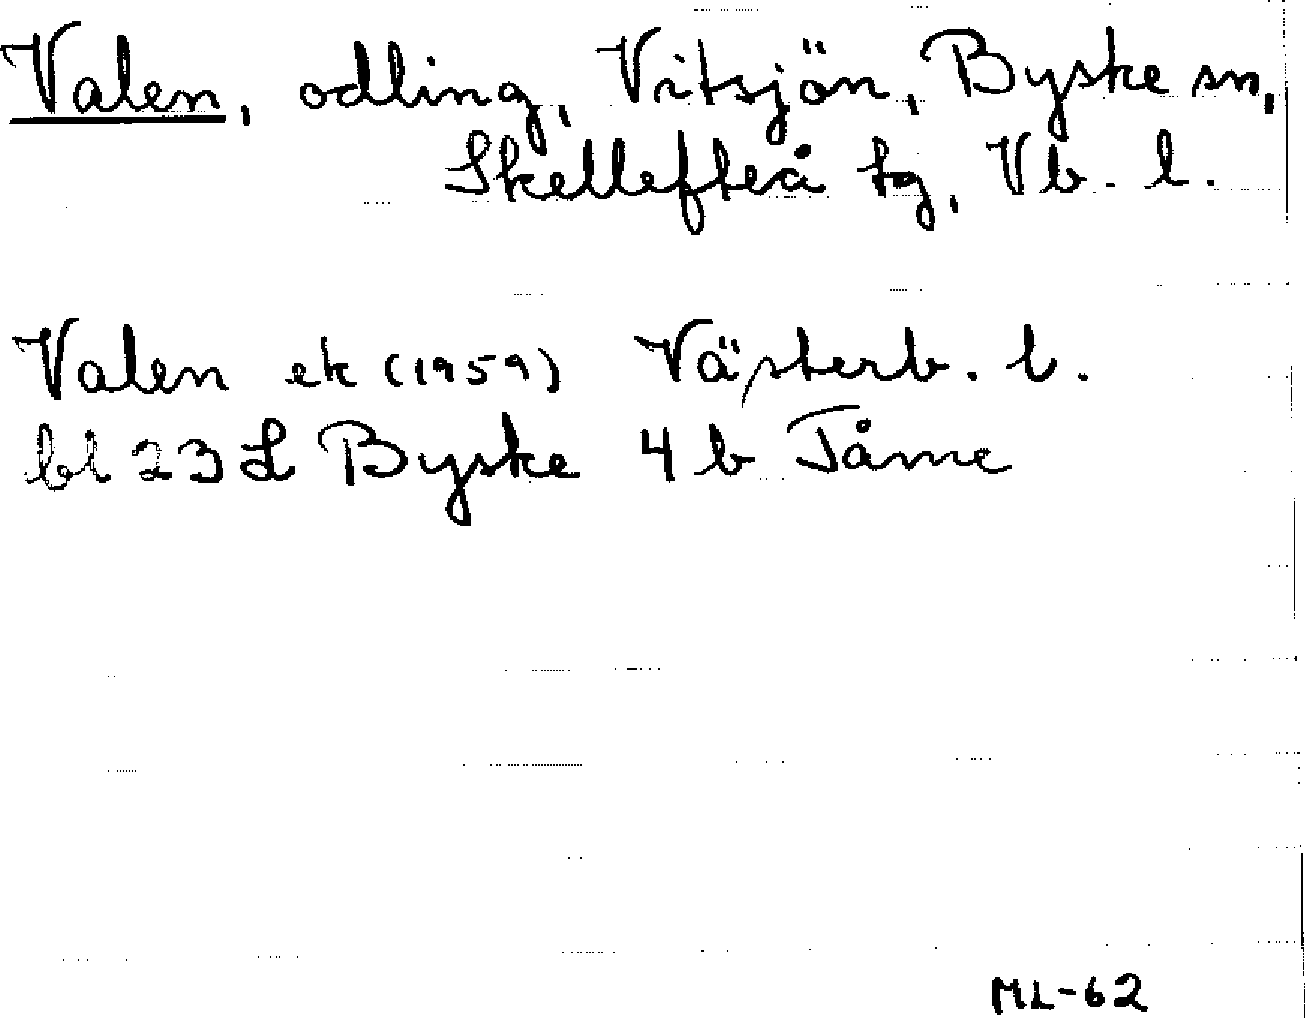 Valen, odling, Vitsjön, Byske sn,
Skellefteå tg, Vb. l.
Valen ek (1959) Västerb. l.
bl 23 L Byske 4 b Tåme
ML-62